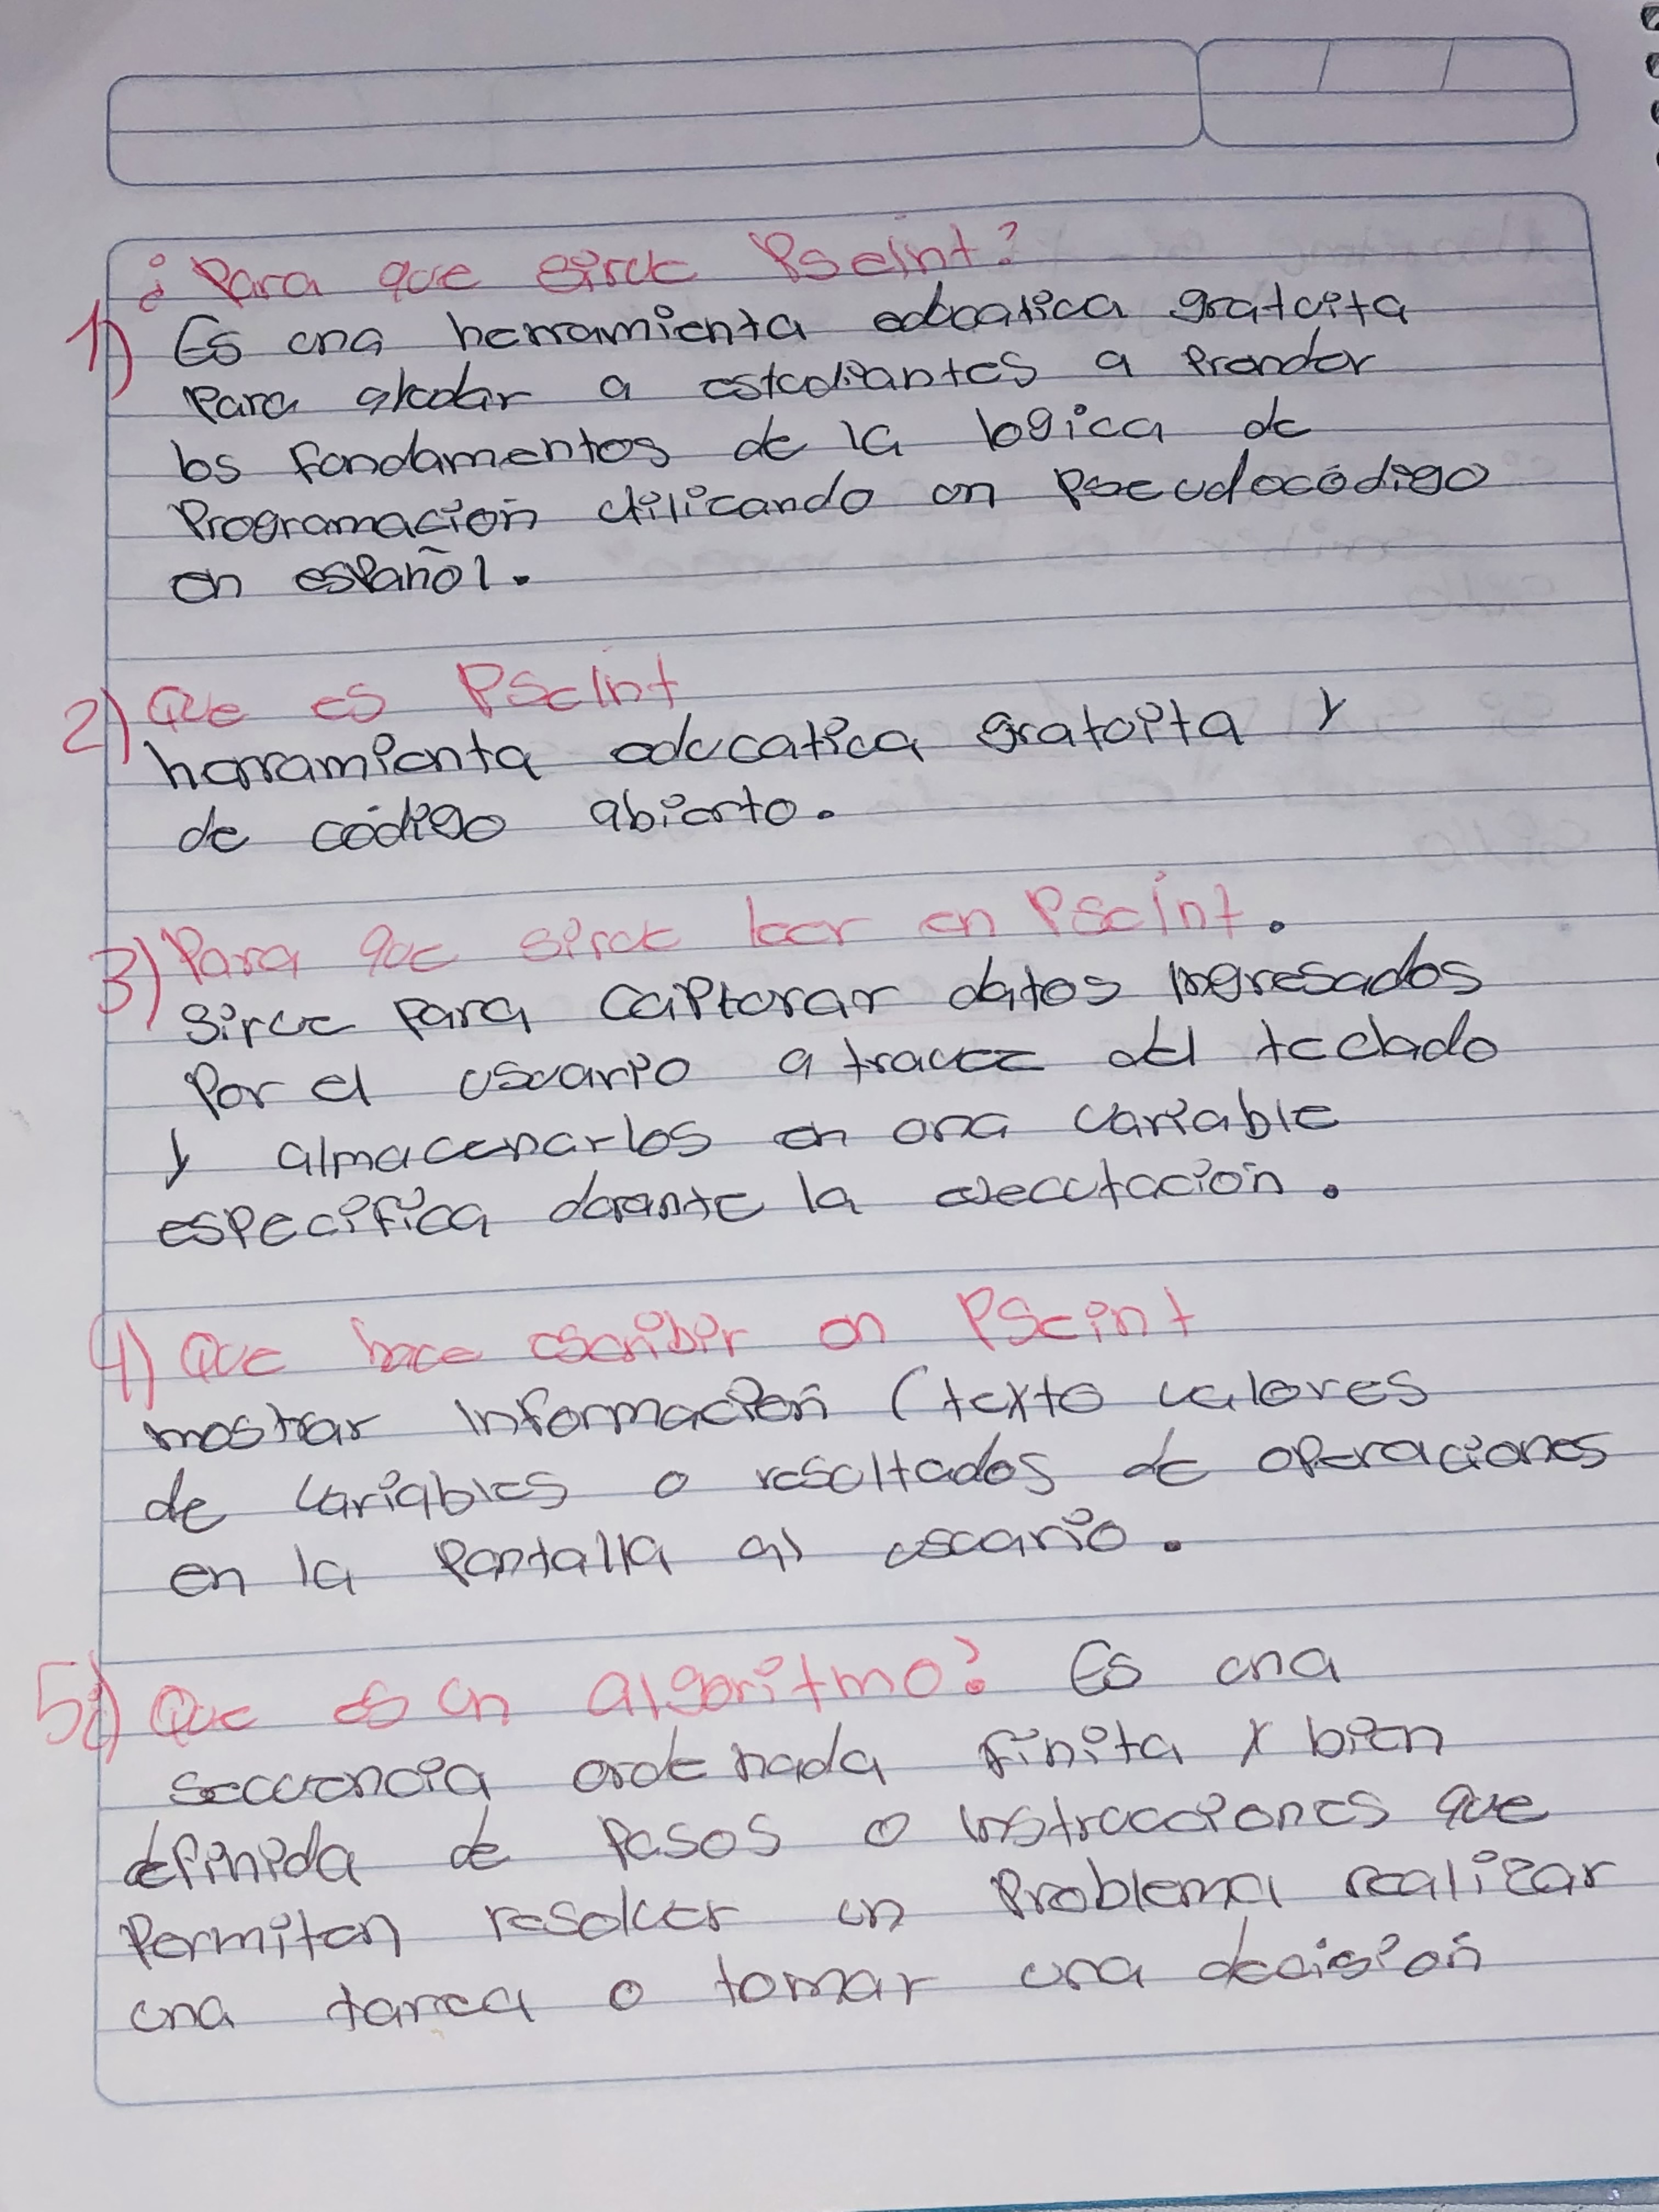 ¿Para que sirve PseInt?
1) Es una herramienta educatica gratuita
Para aludar a estudiantes a Prender
los fundamentos de la logica de
Programación utilicando un Pseudocódigo
en español.
2) Que es PSeInt
herramienta educatica gratuita y
de código abierto.
3) Para que sirve leer en PSeInt.
Sirve para Capturar datos Ingresados
Por el usuario a travez del teclado
y almacenarlos en una variable
especifica durante la ejecutación.
4) Que hace escribir en PSeint
mostrar Información (texto valores
de variables o resultados de operaciones
en la Pantalla al usuario.
5¿) Que es un algoritmo? Es una
secuencia ordenada finita y bien
definida de Pasos o Instrucciones que
Permiten resolver un Problema realizar
una tarea o tomar una decisión